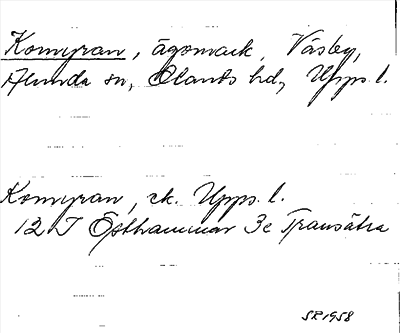 Komyran, ägomark, Väsby,
Alunda sn, Olands hd, Upps. l.
Komyran, ek. Upps. l.
12 I Östhammar 3e Transätra
SR 1958